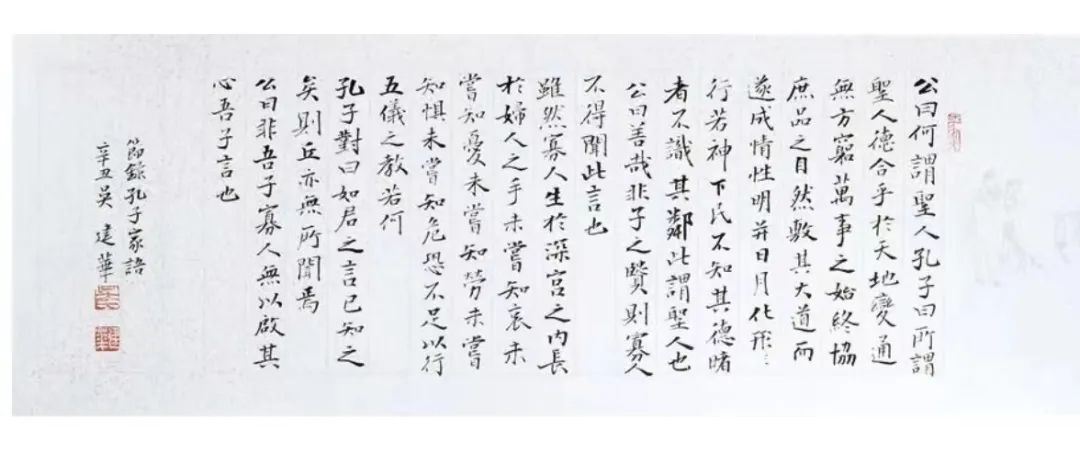 公曰何謂聖人孔子曰所謂
聖人德合乎於天地變通
無方窮萬事之始終協
庶品之自然敷其大道而
遂成情性明并日月化形:
行若神下民不知其德睹
者不識其鄰此謂聖人也
公曰善哉非子之賢則寡人
不得聞此言也
雖然寡人生於深宮之內長
於婦人之手未嘗知哀未
嘗知憂未嘗知勞未嘗
知懼未嘗知危恐不足以行
五儀之教若何
孔子對曰如君之言已知之
矣則丘亦無所聞焉
公曰非吾子寡人無以啟其
心吾子言也
節錄孔子家語
辛丑吳建華